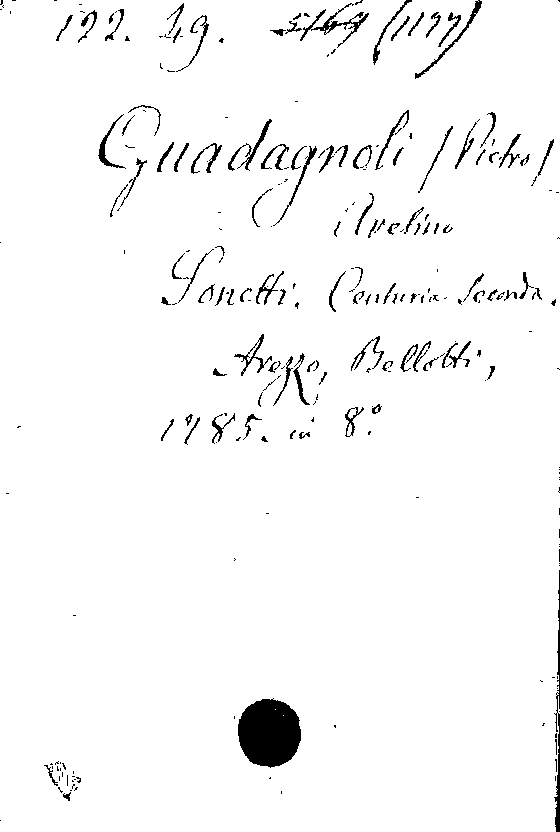 122. 49. 5169 (1177)
Guadagnoli (Pietro)
Aretino
Sonetti. Centuria Seconda.
Arezzo, Bellotti,
1785. in 8.º